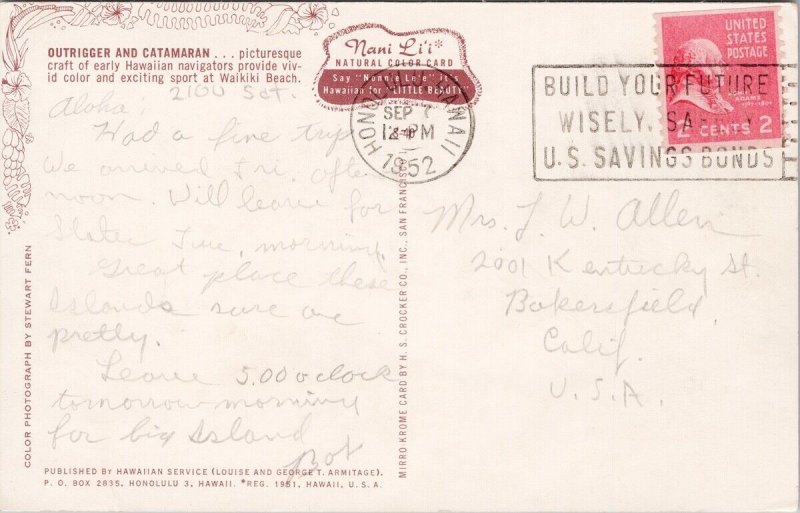 OUTRIGGER AND CATAMARAN . . . picturesque
craft of early Hawaiian navigators provide viv-
id color and exciting sport at Waikiki Beach.
Nani Li'i*
NATURAL COLOR CARD
Say "Nonnie Lee'e" it's
Hawaiian for "LITTLE BEAUTY"
HONOLULU, HAWAII
SEP 7
12 PM
1952
BUILD YOUR FUTURE
WISELY, SAFELY
U.S. SAVINGS BONDS
UNITED
STATES
POSTAGE
JOHN
ADAMS
1797-1801
CENTS 2
Aloha, 2100 Sat.
Had a fine trip
We arrived Fri. after
noon. Will leave for
States Tue. morning.
Great place these
Islands sure are
pretty.
Leave 5.00 o clock
tomorrow morning
for big Island
Mrs. L. W. Allen
2001 Kentucky St.
Bakersfield,
Calif.
U.S.A.
COLOR PHOTOGRAPH BY STEWART FERN
MIRRO KROME CARD BY H. S. CROCKER CO., INC., SAN FRANCISCO
PUBLISHED BY HAWAIIAN SERVICE (LOUISE AND GEORGE T. ARMITAGE).
P. O. BOX 2835, HONOLULU 3, HAWAII. *REG. 1951, HAWAII, U.S.A.